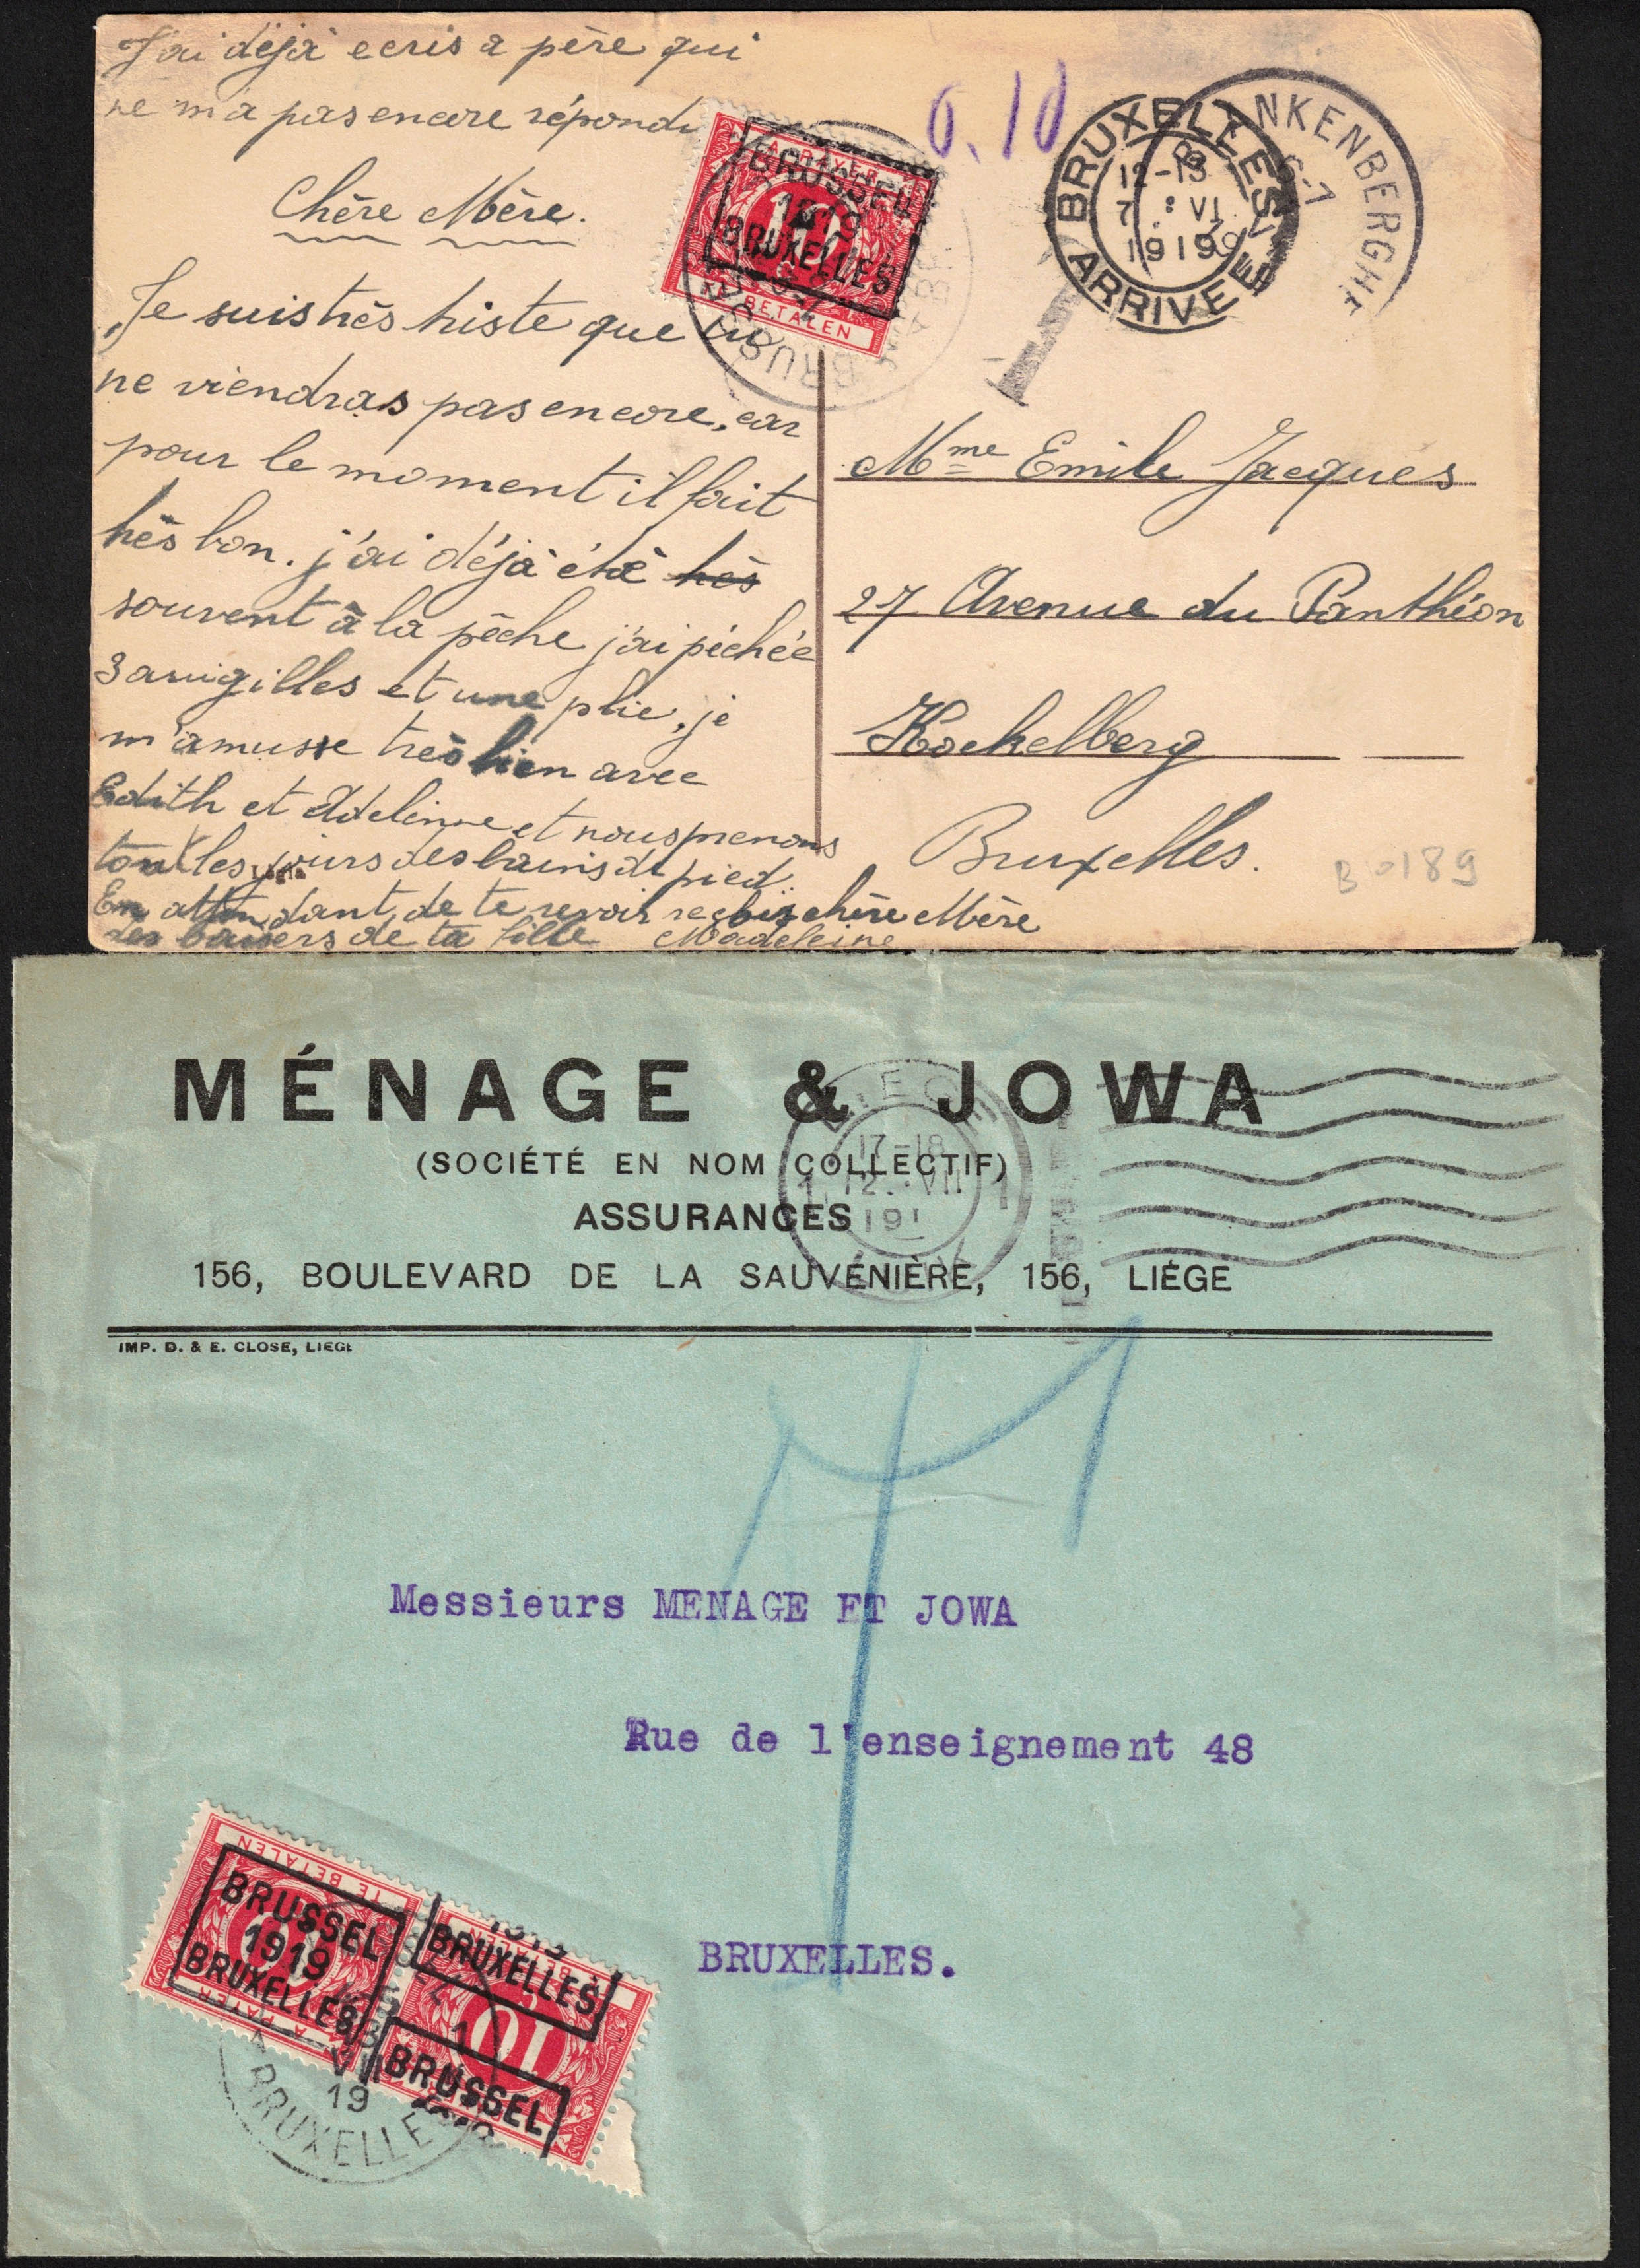 J'ai déjà ecris a père qui
ne m'a pas encore répondu
Chère Mère.
Je suis très triste que tu
ne viendras pas encore, car
pour le moment il fait
très bon. j'ai déjà été très
souvent à la pêche j'ai pêchée
3 anigilles et une plie, je
m'amusse très bien avec
Edith et Adelinne et nous prenons
tout les jours des bains de pied.
En attendant de te revoir reçois chère Mère
des baisers de ta fille Madeleine
0.10
A PAYER
TE BETALEN
BRUSSEL
1919
BRUXELLES
BRUXELLES
12-13
7 VI
1919
ARRIVEE
BLANKENBERGHE
6-7
T
Mme Emile Jacques
27 Avenue du Panthéon
Koekelberg
Bruxelles.
B 0189
MÉNAGE & JOWA
(SOCIÉTÉ EN NOM COLLECTIF)
ASSURANCES
156, BOULEVARD DE LA SAUVENIÈRE, 156, LIÉGE
IMP. D. & E. CLOSE, LIEGE
LIEGE
17-18
12 VII
191
1
Messieurs MENAGE ET JOWA
Rue de l'enseignement 48
BRUXELLES.
TE BETALEN
A PAYER
BRUSSEL
1919
BRUXELLES
1919
BRUXELLES
10
BRUSSEL
1919
VII
19
BRUXELLES